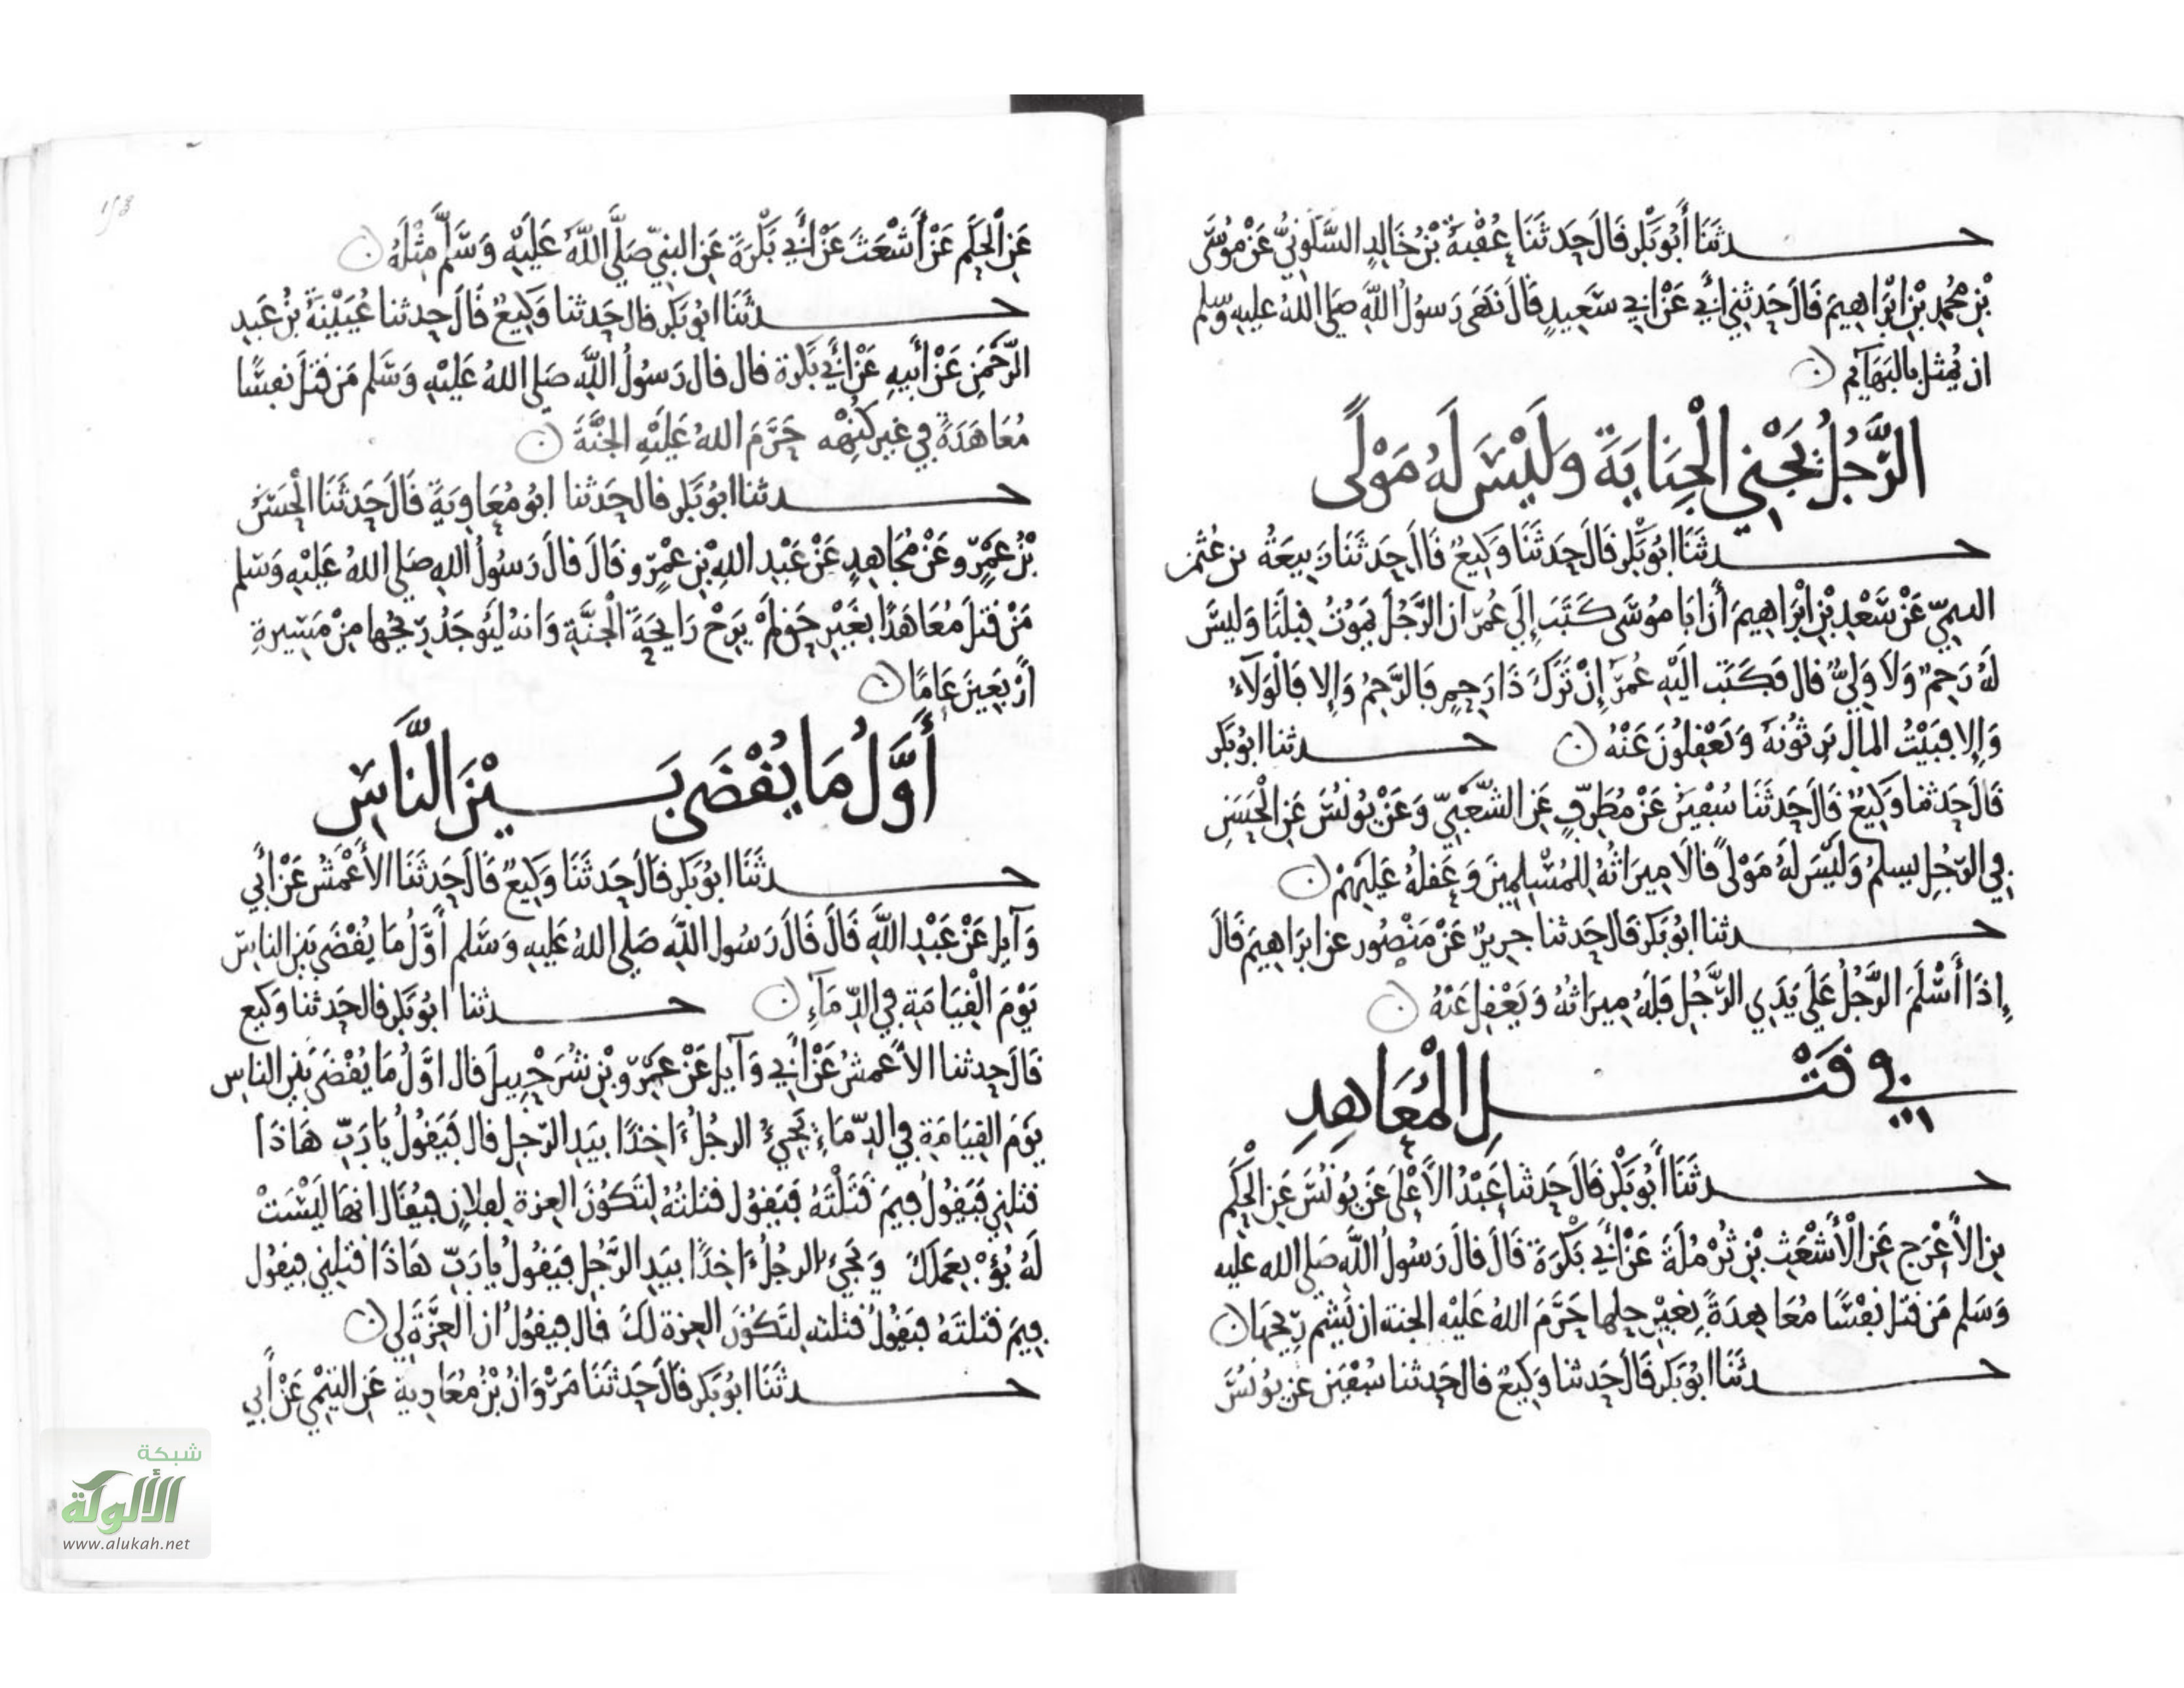 حدثَنَا أَبُو بَكْرٍ قَالَ حَدثَنَا عُقْبَةُ بْنُ خَالِدٍ السَّكُونِيُّ عَنْ مُوسَى
بْنِ مُحمدِ بْنِ ابْرَاهِيمَ قَالَ حَدثَنِي أَبِي عَنْ ابِي سَعِيدٍ قَالَ نَهَى رَسُولُ اللَّهِ صَلى اللهُ عليهِ وسلم
ان يُمثل بالبَهَآئم
الرَّجُلُ يَجْنِي الْجِنَايَةَ وَلَيْسَ لَهُ مَوْلًى
حدثَنَا ابُو بَكْرٍ قَالَ حَدثَنَا وَكِيعٌ قَالَ حَدثَنَا رَبِيعَةُ بن عُثمن
التيمِيّ عَنْ سَعْدِ بْنِ ابْرَاهِيمَ أَن ابَا مُوسَى كَتَبَ إِلَى عُمَرَ ان الرَّجُلَ يَمُوتُ قِبلَنَا وَليسَ
لَهُ رَحِمٌ وَلَا وَلِيٌّ قال فَكَتَبَ الَيْهِ عُمَرُ إِنْ تَرَكَ ذَا رَحِمٍ فَالرَّحِمُ وَإِلا فَالْوَلَآءُ
وَإِلا فبَيْتُ المالِ يَرِثُونَهُ وَيَعْقِلُونَ عَنْهُ حدثنا ابُو بَكر
قَالَ حَدثنا وَكِيعٌ قَالَ حَدثَنَا سُفْيَنُ عَنْ مُطَرِّفٍ عَنِ الشَّعْبِيِّ وَعَنْ يُونُسَ عَنِ الْحَسَنِ
فِي الرّجُلِ يسلمُ وَلَيْسَ لَهُ مَوْلًى قَالَا مِيرَاثُهُ لِلمُسْلِمِينَ وَعَقلُهُ عَلَيهِمْ
حدثنا ابُو بَكر قال حَدثنا جريرٌ عَنْ مَنْصُور عن ابرَاهِيمَ قَالَ
إِذَا أَسْلَمَ الرَّجُلُ عَلَى يَدَيِ الرَّجُلِ فَلَهُ مِيرَاثُهُ وَيَعْقِل عَنْهُ
في قَتْلِ الْمُعَاهِدِ
حدثَنَا أَبُو بَكْرٍ قَالَ حَدثَنا عَبْدُ الأَعْلَى عَن يُونُسَ عَنِ الْحَكَمِ
بنِ الأَعْرَجِ عَنِ الْأَشْعَثِ بْنِ ثُرْمُلَةَ عَنْ أَبِي بَكْرَةَ قَالَ قَالَ رَسُولُ اللَّهِ صَلى الله عليه
وَسَلم مَن قَتَلَ نفْسًا مُعَاهِدَةً بِغَيْرِ حِلها حَرَّمَ اللهُ عَلَيْهِ الجنة ان يَشم رِيحَهَا
حدثَنَا ابُو بَكر قَالَ حَدثنا وَكِيعٌ قال حَدثنا سُفْيَن عن يُونُسَ
عَنِ الْحَكَمِ عَنْ أَشْعَثَ عَنْ أَبِي بَكْرَةَ عَنِ النبِيِّ صَلَّى اللَّهُ عَلَيْهِ وَسَلَّمَ مِثْلَهُ
حدثَنَا ابُو بَكر قال حَدثنا وَكِيعٌ قَالَ حدثنا عُيَيْنَةُ بْنُ عَبدِ
الرَّحْمَنِ عَنْ أَبِيهِ عَنْ أَبِي بَكْرَة قال قال رَسُولُ اللَّهِ صَلى اللهُ عَلَيْهِ وَسَلم مَن قتلَ نفسًا
مُعَاهَدَةً فِي غير كُنْهِهِ حَرَّمَ اللهُ عَلَيْهِ الجَنَّةَ
حدثنا ابُو بَكر قال حَدثنا ابُو مُعَاوِيَةَ قَالَ حَدثَنَا الْحَسَنُ
بْنُ عَمْرٍو عَنْ مُجَاهِدٍ عَنْ عَبْدِ اللهِ بْنِ عَمْرٍو قَالَ قالَ رَسُولُ اللهِ صَلى اللهُ عَلَيْهِ وَسَلم
مَنْ قَتلَ مُعَاهَدًا بِغَيْرِ حَقٍّ لَمْ يَرَحْ رَايِحَةَ الْجنَّةِ وَانهُ لَيُوجَدُ رِيحُها مِنْ مَسِيرةِ
أَرْبَعِينَ عَامًا
أَوَّلُ مَا يُقْضَى بَيْنَ النَّاسِ
حدثَنَا ابُو بَكر قَالَ حَدثَنَا وَكِيعٌ قَالَ حَدثَنَا الأَعْمَشُ عَنْ أَبِي
وَآيلٍ عَنْ عَبْدِ اللَّهِ قَالَ قَالَ رَسُول اللَّهِ صَلى اللهُ عَلَيهِ وَسَلم أَوَّلُ مَا يُقْضَى بَين الناسِ
يَوْمَ الْقِيَامَةِ فِي الدِّمَآءِ حدثنا ابُو بَكر قال حَدثنا وَكيع
قَالَ حدثنا الأَعمشُ عَنْ أَبِي وَآيل عَنْ عَمْرِو بْنِ شُرَحْبِيلَ قال اوَّلُ مَا يُقْضَى بَين الناسِ
يَومَ القِيَامَةِ فِي الدِّمَاءِ يَجِيءُ الرجُلُ ءَاخِذًا بِيَدِ الرّجلِ قال فَيَقُولُ يَا رَبِّ هَاذَا
قتلنِي فَيَقُولُ فِيمَ قَتَلْتَهُ فَيَقُول قتلتُهُ لِتَكُونَ العزة لِفلانٍ فيُقَال انهَا لَيْسَتْ
لَهُ بُؤْ بِعَمَلكَ وَيَجِيءُ الرجُلُ ءَاخِذًا بِيَدِ الرَّجُلِ فيَقُولُ يا رَبِّ هَاذَا قتلنِي فيَقُول
فِيمَ قتلتَهُ فيَقُولُ قتلته لِتَكُونَ العِزة لَكَ قال فيقُولُ ان العِزَّةَ لِي
حدثَنَا ابُو بَكر قَالَ حَدثَنَا مَرْوَانُ بْنُ مُعَاوِيةَ عَنِ التيْمِي عَنْ أَبِي
شبكة
الألوكة
www.alukah.net